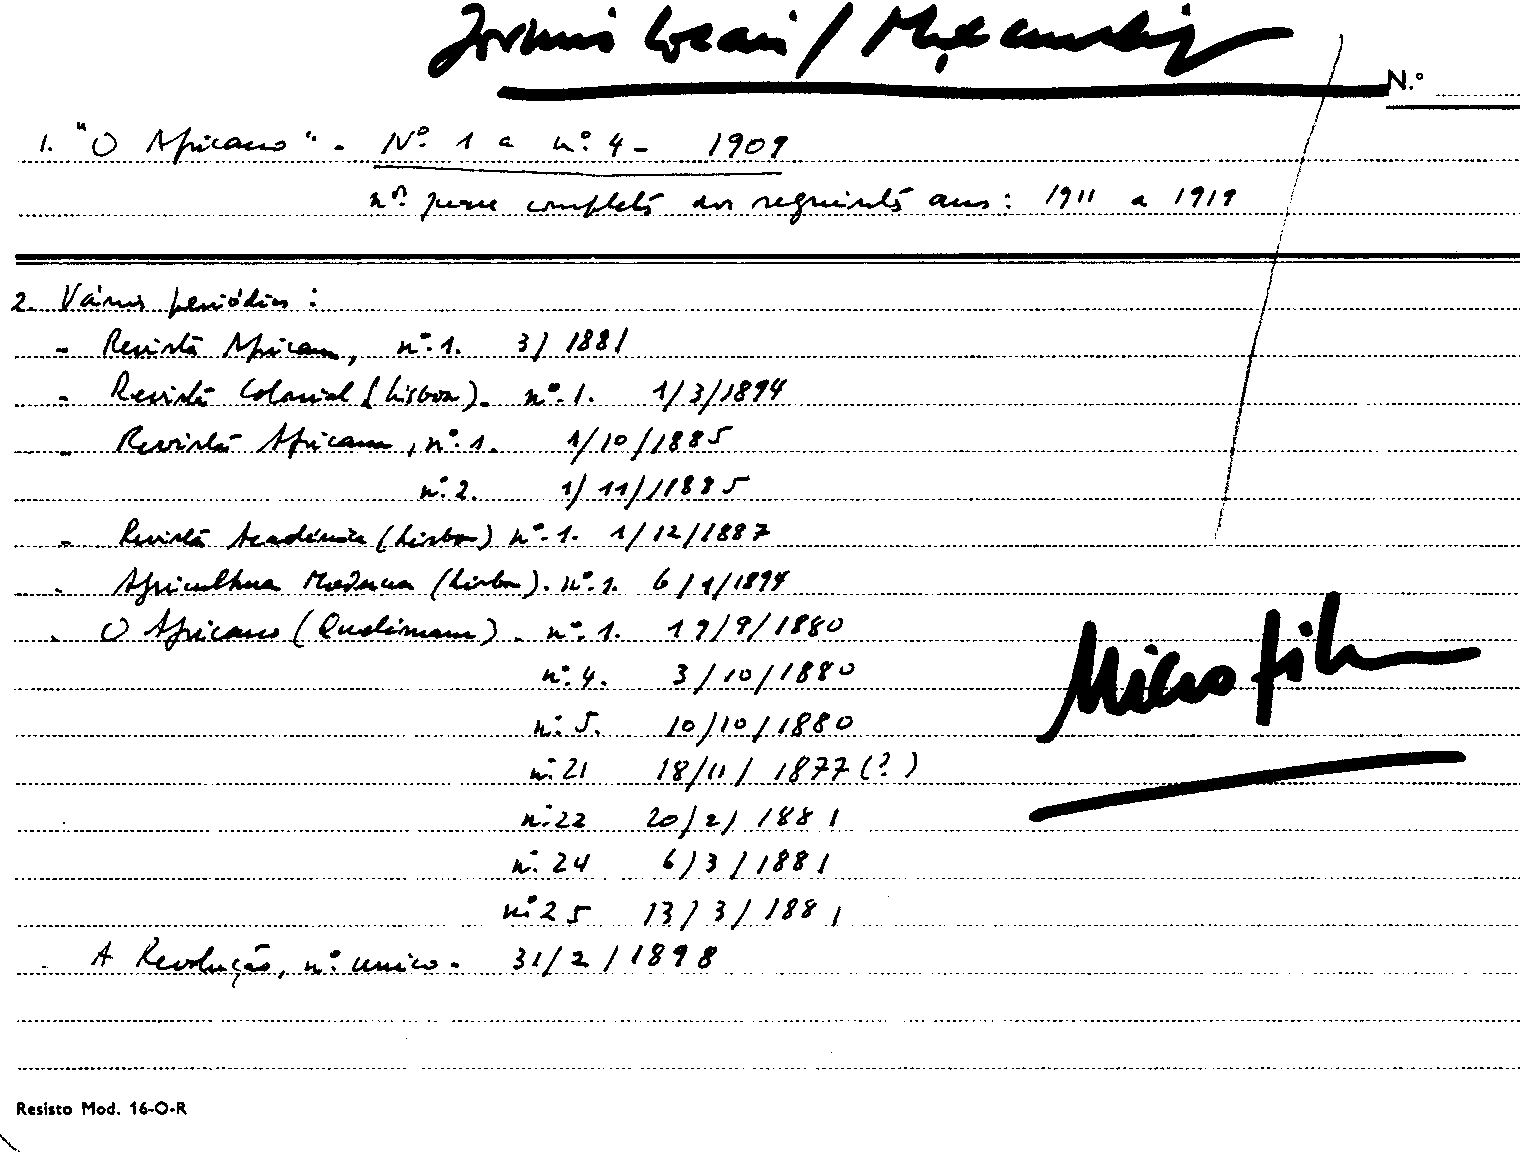 Jornais Locais / Moçambique
N.º
1. "O Africano" - Nº. 1 a nº. 4 - 1909
nº. completa dos seguintes anos: 1911 a 1919
2. Vários periódicos:
- Revista Africana, nº. 1. 3/1881
- Revista Colonial (Lisboa). nº. 1. 1/3/1894
- Revista Africana, nº. 1. 1/10/1885
nº. 2. 1/11/1885
- Revista Académica (Lisboa) nº. 1. 1/12/1887
- Agricultura Moderna (Lisboa). nº. 1. 6/1/1894
- O Africano (Quelimane). nº. 1. 19/9/1880
nº. 4. 3/10/1880
nº. 5. 10/10/1880
nº. 21 18/11/1877 (?)
nº. 22 20/2/1881
nº. 24 6/3/1881
nº. 25 13/3/1881
- A Revolução, nº. unico. 31/2/1898
Microfilm
Resisto Mod. 16-O-R